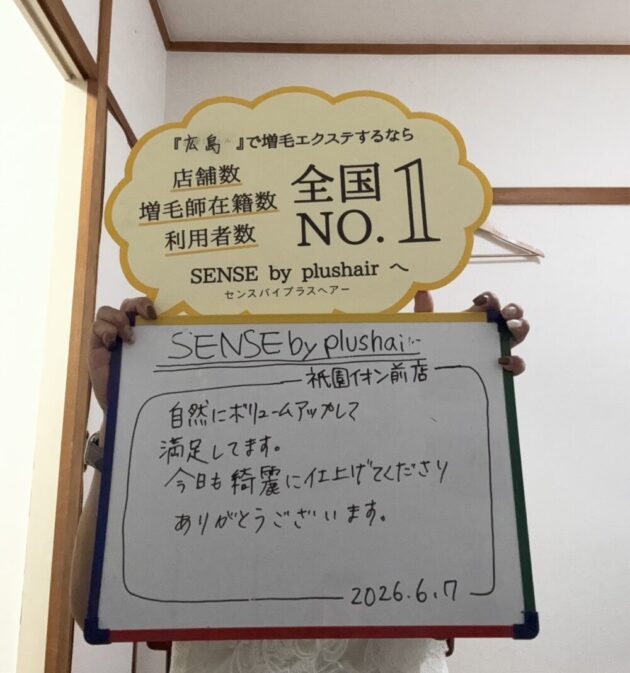 『広島』で増毛エクステするなら
店舗数
増毛師在籍数
利用者数
全国
NO.1
SENSE by plushair へ
センスバイプラスヘアー
SENSE by plushair
祇園イオン前店
自然にボリュームアップして
満足してます。
今日も綺麗に仕上げてくださり
ありがとうございます。
2026.6.7